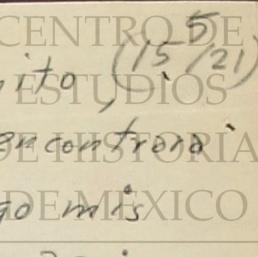 CENTRO DE
5
ito, (15/21)
ESTUDIOS
encontrará
DE HISTORIA
go mis
DE MÉXICO